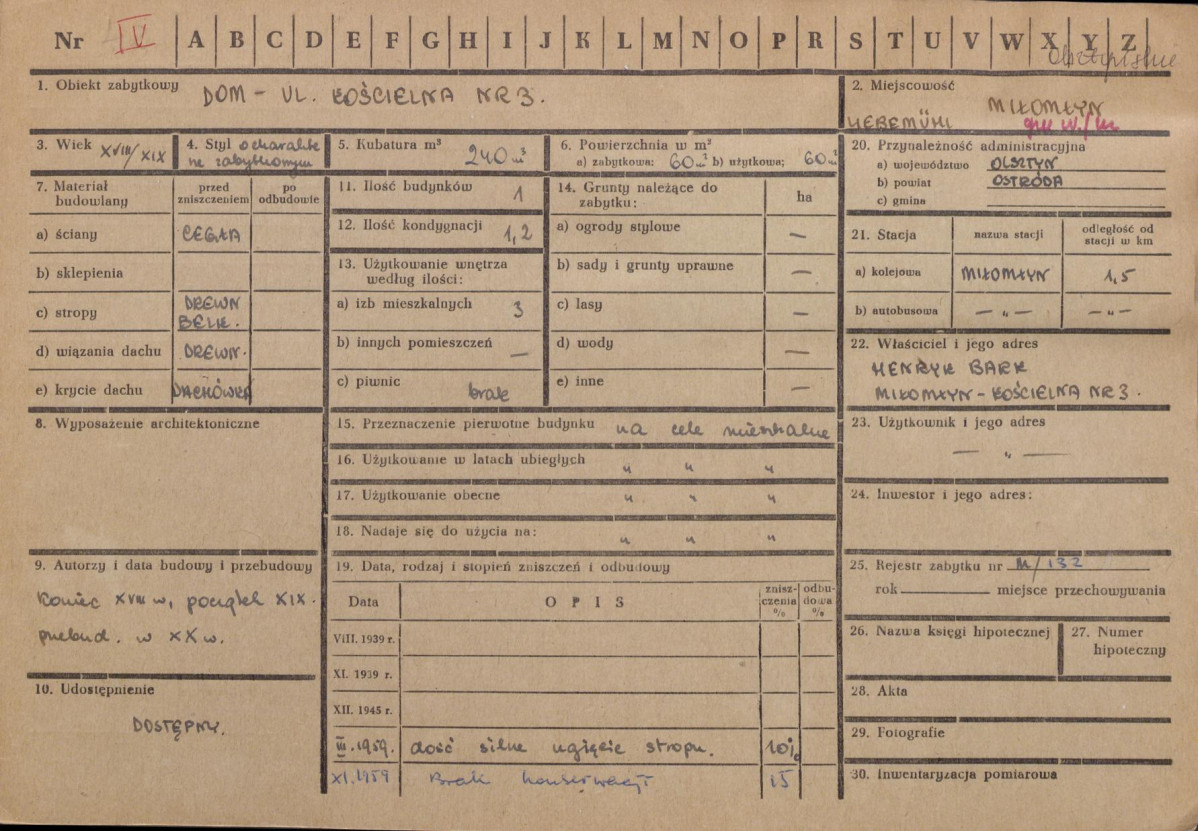 Nr IV A B C D E F G H I J K L M N O P R S T U V W X Y Z
1. Obiekt zabytkowy DOM - UL. KOŚCIELNA NR 3.
2. Miejscowość
MIŁOMŁYN
LIEBEMÜHL
3. Wiek XVIII/XIX
4. Styl o charakte
rze zabytkowym
5. Kubatura m³ 240 m³
6. Powierzchnia w m²
a) zabytkowa: 60 m² b) użytkowa; 60 m²
7. Materiał budowlany
przed zniszczeniem
po odbudowie
a) ściany CEGŁA
b) sklepienia
c) stropy DREWN
BELK.
d) wiązania dachu DREWN.
e) krycie dachu DACHÓWKA
8. Wyposażenie architektoniczne
9. Autorzy i data budowy i przebudowy
Koniec XVIII w, początek XIX.
przebud. w XX w.
10. Udostępnienie
DOSTĘPNY.
11. Ilość budynków 1
12. Ilość kondygnacji 1,2
13. Użytkowanie wnętrza
według ilości:
a) izb mieszkalnych 3
b) innych pomieszczeń —
c) piwnic brak
14. Grunty należące do
zabytku:
ha
a) ogrody stylowe —
b) sady i grunty uprawne —
c) lasy —
d) wody —
e) inne —
15. Przeznaczenie pierwotne budynku na cele mieszkalne
16. Użytkowanie w latach ubiegłych " " "
17. Użytkowanie obecne " " "
18. Nadaje się do użycia na: " " "
19. Data, rodzaj i stopień zniszczeń i odbudowy
Data
OPIS
znisz-
czenia
%
odbu-
dowa
%
VIII. 1939 r.
XI. 1939 r.
XII. 1945 r.
III.1959. dość silne ugięcie stropu. 10%
XI.1959 Brak konserwacji 15
20. Przynależność administracyjna
a) województwo OLSZTYN
b) powiat OSTRÓDA
c) gmina
21. Stacja
nazwa stacji
odległość od
stacji w km
a) kolejowa MIŁOMŁYN 1,5
b) autobusowa — " — — " —
22. Właściciel i jego adres
HENRYK BARK
MIŁOMŁYN - KOŚCIELNA NR 3.
23. Użytkownik i jego adres
— " —
24. Inwestor i jego adres:
25. Rejestr zabytku nr M/132
rok miejsce przechowywania
26. Nazwa księgi hipotecznej
27. Numer
hipoteczny
28. Akta
29. Fotografie
30. Inwentaryzacja pomiarowa